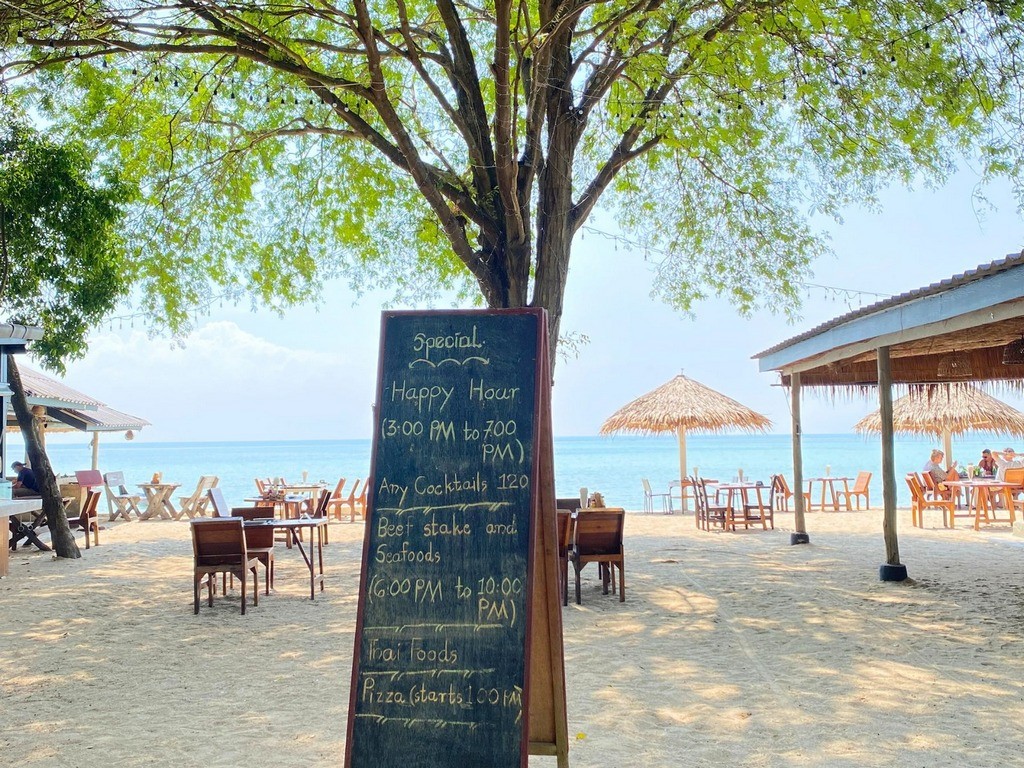 Special.
Happy Hour
(3:00 PM to 7.00
PM)
Any Cocktails 120
Beef stake and
Seafoods
(6:00 PM to 10:00
PM)
Thai Foods
Pizza (starts 1.00 PM)